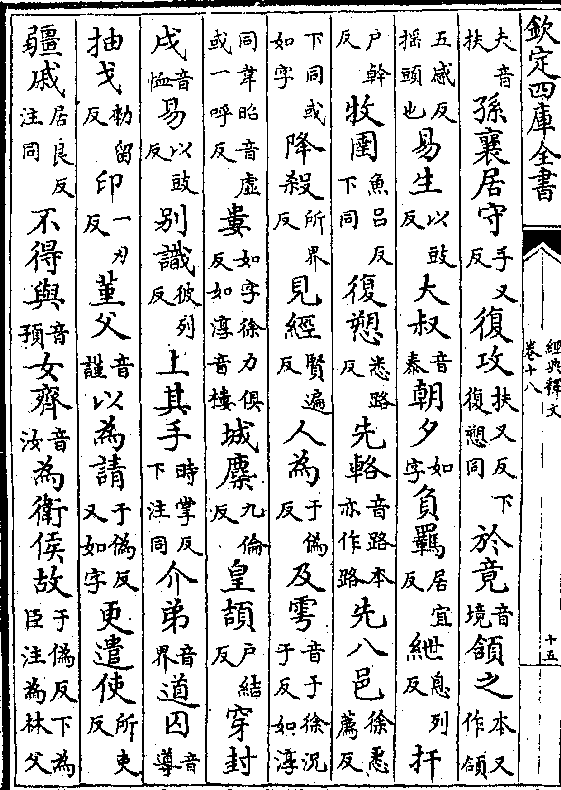 欽定四庫全書
經典釋文
卷十八
十五
夫音扶孫襄居守手又反復攻扶又反下復愬同於竟音境頷之本又作頜
五感反摇頭也易生以豉反大叔音泰朝夕如字負羈居宜反紲息列反扞
户幹反牧圉魚呂反下同復愬悉路反先輅音路本亦作路先八邑徐悉薦反
下同或如字降殺所界反見經賢遍反人為于偽反及雩音于徐況于反如淳
同韋昭音虛或一呼反婁如字徐力俱反如淳音樓城麇九倫反皇頡户結反穿封
戌音恤易以豉反别識彼列反上其手時掌反下注同介弟音界道囚音導
抽戈勑留反印一刃反堇父音謹以為請于偽反又如字更遣使所吏反
疆戚居良反注同不得與音預女齊音汝為衛侯故于偽反下為臣注為林父